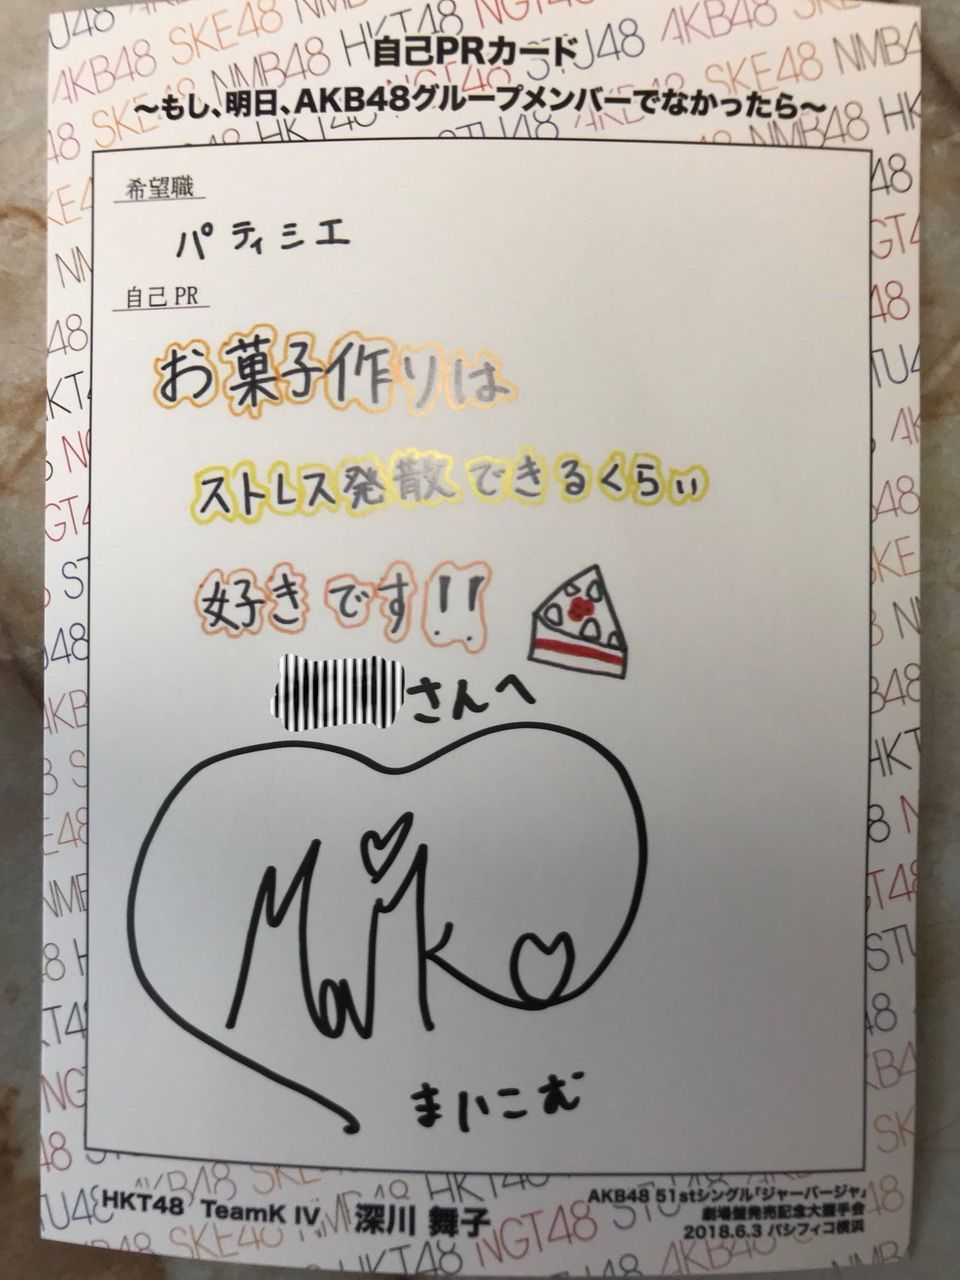 自己PRカード
～もし、明日、AKB48グループメンバーでなかったら～
希望職
パティシエ
自己PR
お菓子作りは
ストレス発散できるくらい
好きです!!
さんへ
Maiko
まいこむ
HKT48 TeamK IV 深川 舞子
AKB48 51stシングル「ジャーバージャ」
劇場盤発売記念大握手会
2018.6.3 パシフィコ横浜